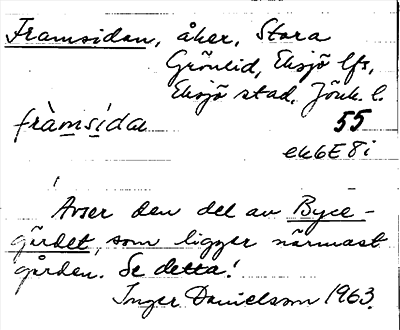 Framsidan, åker, Stora
Grönlid, Eksjö lfs,
Eksjö stad. Jönk. l.
fràmsída 55
ek6E8i
Avser den del av Byce-
gärdet, som ligger närmast
gården. Se detta!
Inger Danielsson 1963.